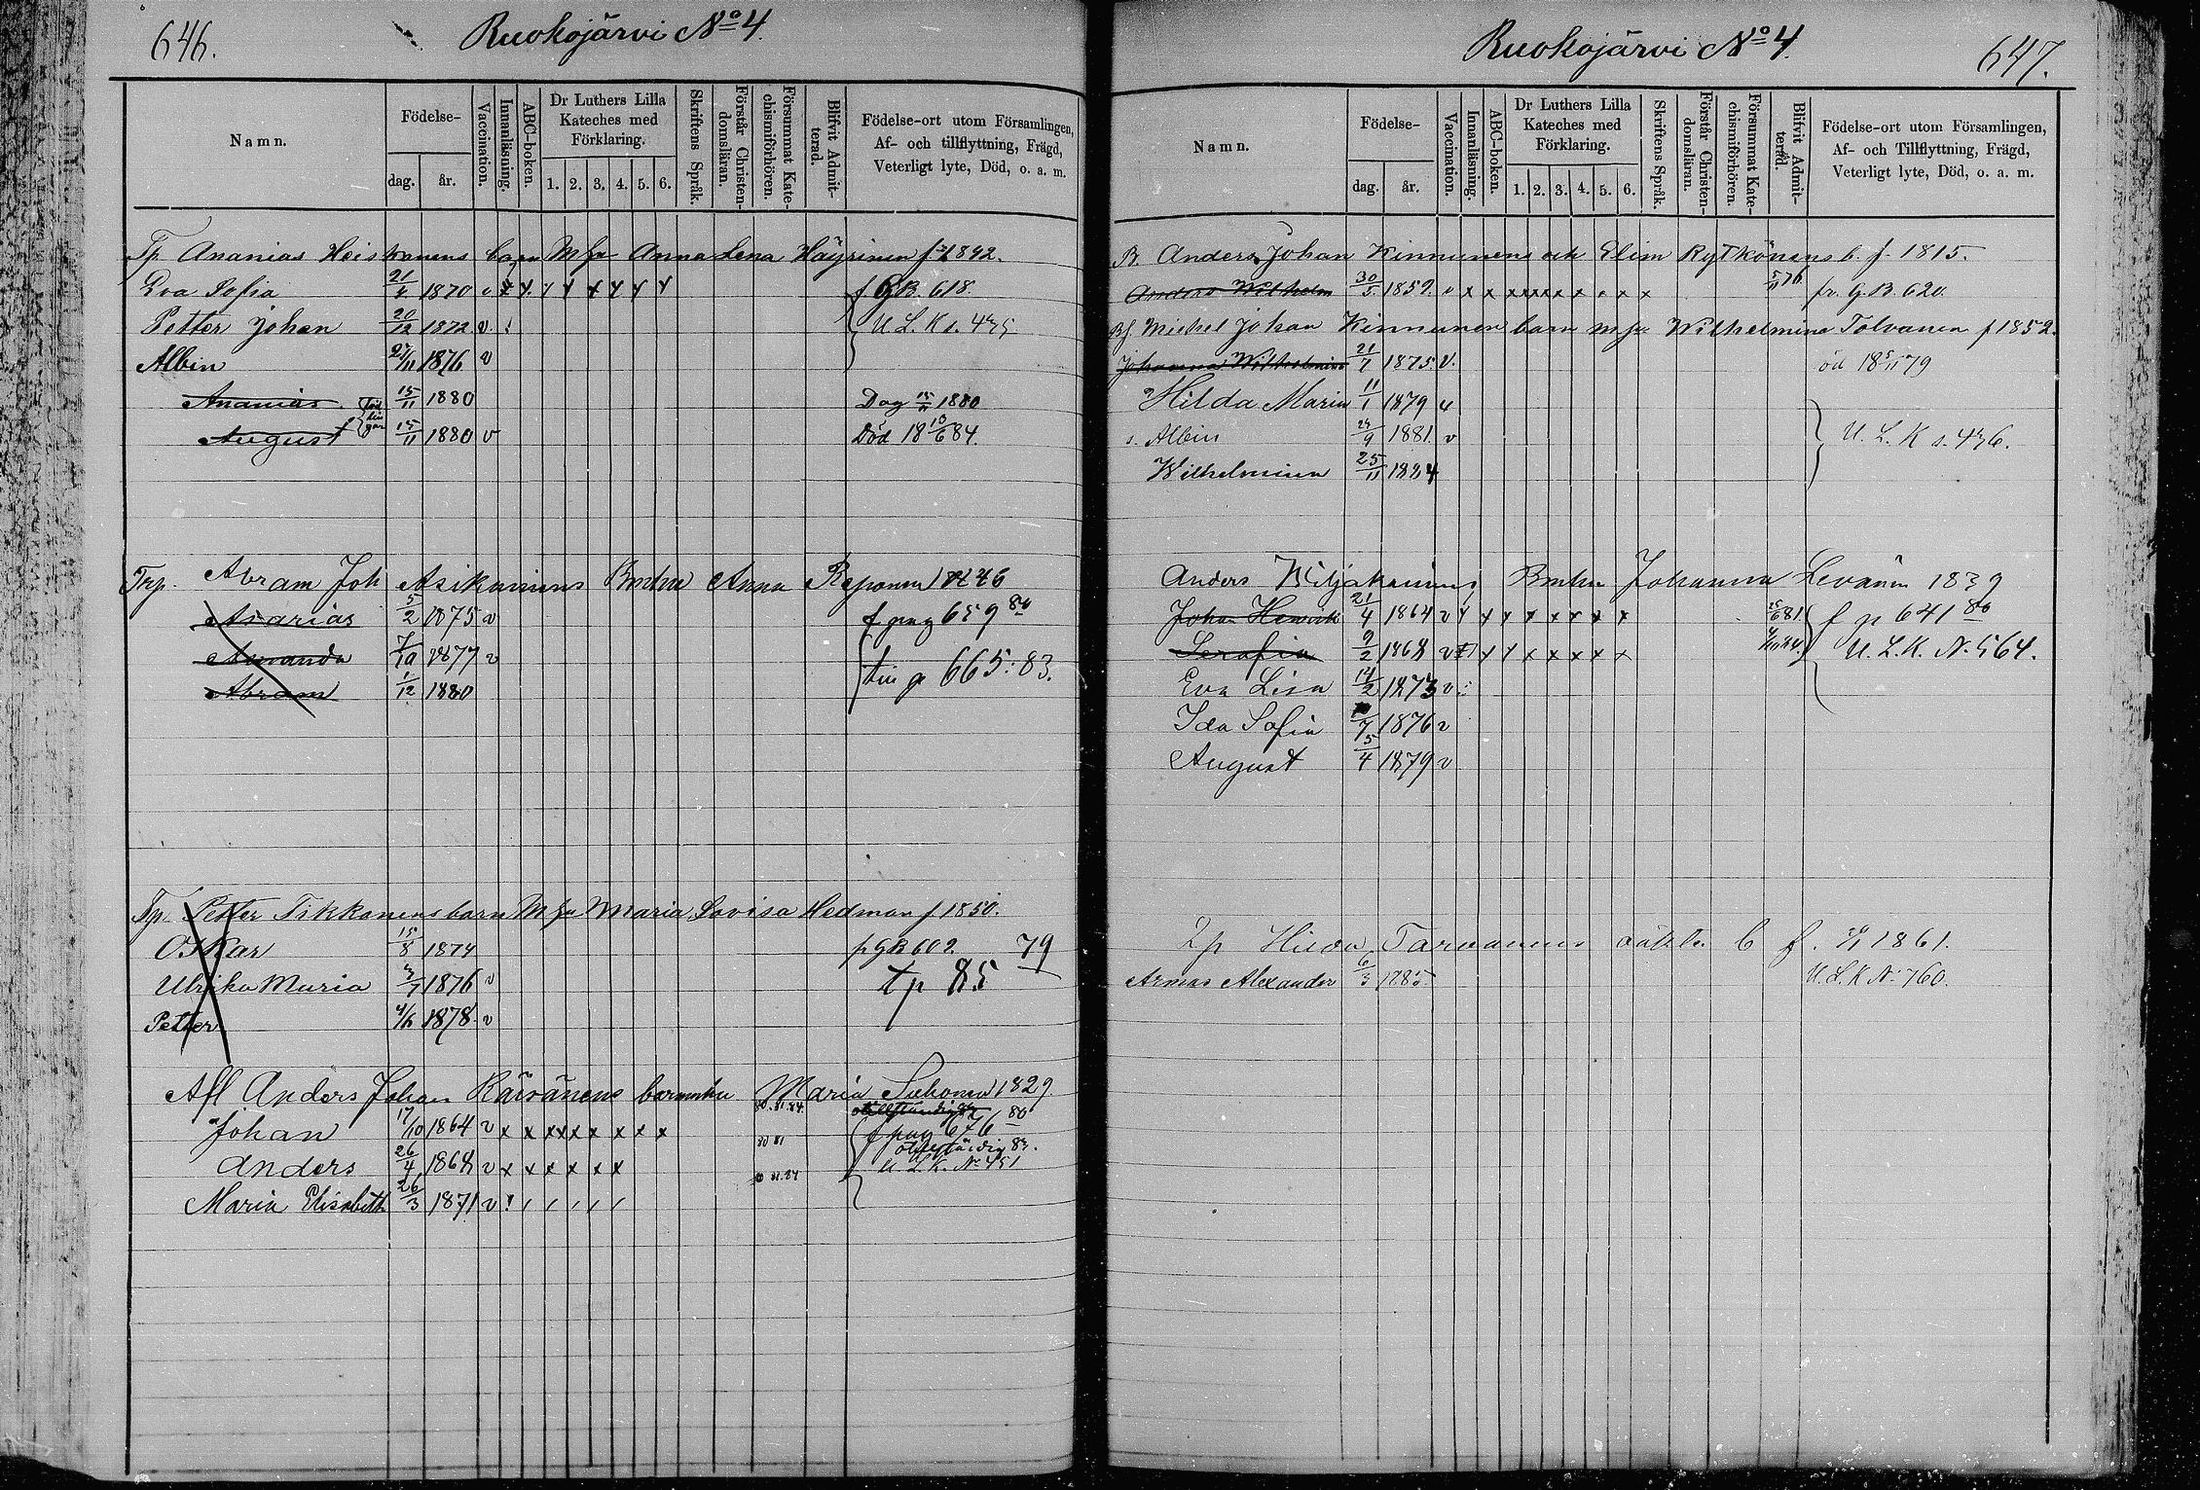 646.
Ruokojärvi No 4.
Namn.
Födelse-
dag.
år.
Vaccination.
Innanläsning.
ABC-boken.
Dr Luthers Lilla Kateches med Förklaring.
1. 2. 3. 4. 5. 6.
Skriftens Språk.
Förstår Christendomsläran.
Försummat Katechismiförhören.
Blifvit Admitterad.
Födelse-ort utom Församlingen,
Af- och tillflyttning, Frägd,
Veterligt lyte, Död, o. a. m.
Tp Ananias Heiskanens barn M fa Anna Lena Häyrinen f 1842.
Eva Sofia 21/4 1870 v x x x x x x x x f GB. 618.
Petter Johan 20/12 1872 v U. L. K s. 435
Albin 27/11 1876 v
Ananias 15/11 1880 Döq 15/11 1880
August 15/11 1880 v Död 18 13/6 84.
Trp. Abram Joh Asikainens Bmhu Anna Reponen 1846
Asarias 5/2 1875 v f pag 659 80
Amanda 7/10 1877 v tin p 665: 83.
Abram 1/12 1880
Tp. Petter Tikkanens barn M fa Maria Lovisa Hedman f 1850.
Oskar 15/8 1874 f GB 602. 79
Ulrika Maria 3/7 1876 v tp 85
Petter 4/6 1878. v
Afl Anders Johan Räisänens barnmhu Maria Suhonen 1829.
Johan 17/10 1864 v x x x x x x x x 80. 81. 84. f pag 676 80
Anders 26/4 1868 v x x x x x x 80 81 U. L. K. No 451
Maria Elisabeth 26/3 1871 v
647.
Ruokojärvi No 4.
Namn.
Födelse-
dag.
år.
Vaccination.
Innanläsning.
ABC-boken.
Dr Luthers Lilla Kateches med Förklaring.
1. 2. 3. 4. 5. 6.
Skriftens Språk.
Förstår Christendomsläran.
Försummat Katechismiförhören.
Blifvit Admitterad.
Födelse-ort utom Församlingen,
Af- och Tillflyttning, Frägd,
Veterligt lyte, Död, o. a. m.
B. Anders Johan Kinnunens och Elim Rytkönens b. f. 1815.
Anders Wilhelm 30/5 1859. v x x x x x x x x x 5/11 76 fr. G.B. 620.
Bf. Michel Johan Kinnunen barn m fa Wilhelmina Tolvanen f 1852.
Johanna Wilhelmina 21/7 1875. v. öd 18 5/11 79
Hilda Maria 11/1 1879 v
s. Albin 24/9 1881. v U. L. K s. 436.
Wilhelmina 25/11 1884
Anders Wiljakainens Bmhu Johanna Levänen 1839
Johan Henrik 21/4 1864 v x x x x x x x x 25/6 81. f p 641 80
Serafia 9/2 1868 v x x x x x x x U. L. K. N. 564.
Eva Lisa 14/2 1873 v
Ida Sofia 7 1876 v
August 5/4 1879 v
Hilda Tarvainens oäkta b f. 1861.
Armas Alexander 6/3 1885. U. L. K No 760.